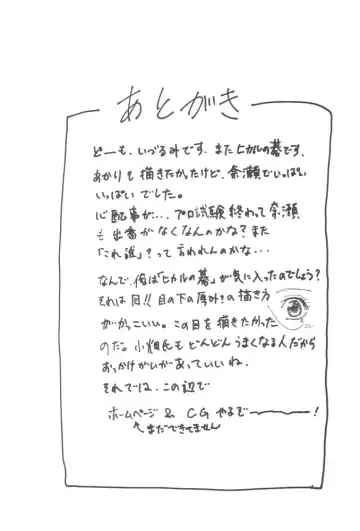 あとがき
どーも、いづるみです、またヒカルの碁です、
あかりも描きたかったけど、奈瀬でいっぱい
いっぱいでした。
心配事が… プロ試験終わって奈瀬
も出番がなくなんのかな? また
「これ誰?」って言われんのかな…
なんで、俺は「ヒカルの碁」が気に入ったのでしょう?
それは目!! 目の下の厚み?の描き方
がかっこいい。この目を描きたかった
のだ。小畑氏もどんどんうまくなる人だから
おっかけがいがあっていいね。
それでは、この辺で
コレ
ホームページ & CG やるぞーーー!
まだできてません